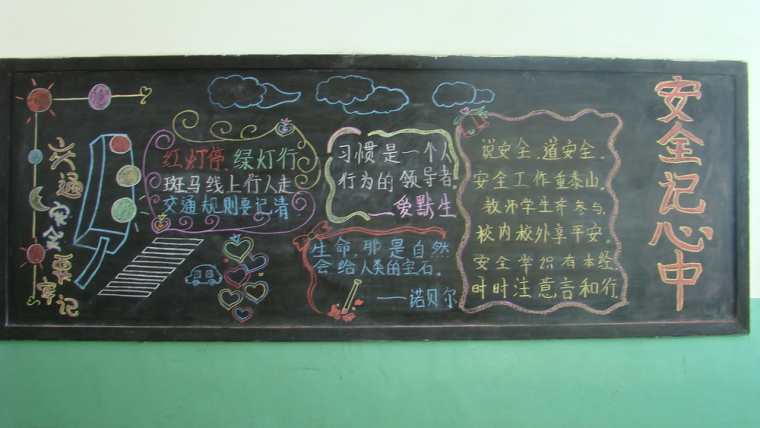 交通安全要牢记
红灯停,绿灯行
斑马线上行人走
交通规则要记清
习惯是一个人
行为的领导者。
——爱默生
生命,那是自然
会给人类的宝石。
——诺贝尔
说安全,道安全。
安全工作重泰山。
教师学生齐参与,
校内校外享平安。
安全常识有本经
时时注意言和行
安全记心中